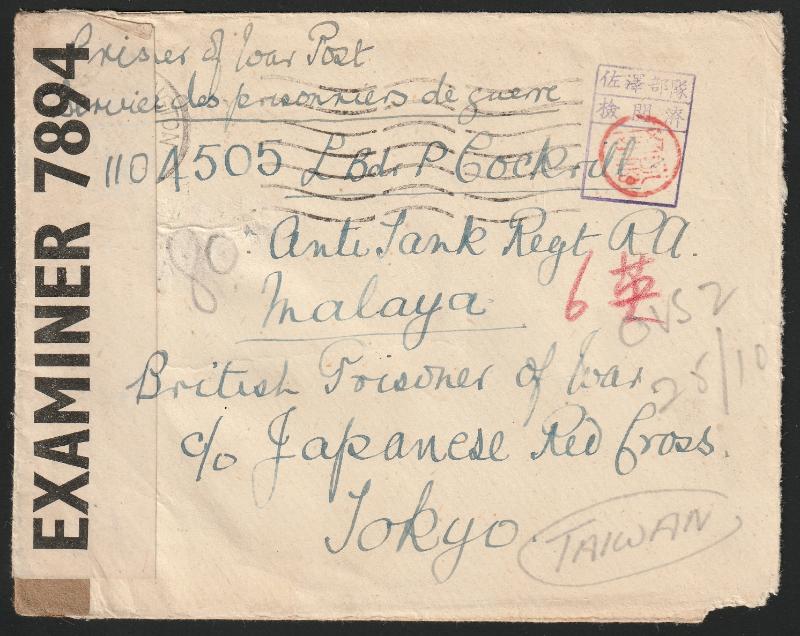 EXAMINER 7894
Prisoner of War Post
Service des prisonniers de guerre
佐澤部隊
檢閲濟
1104505 L Bdr P Cockrill
80
Anti Tank Regt R.A.
6英
Malaya
OVS 2
25/10
British Prisoner of War
c/o Japanese Red Cross.
Tokyo.
TAIWAN